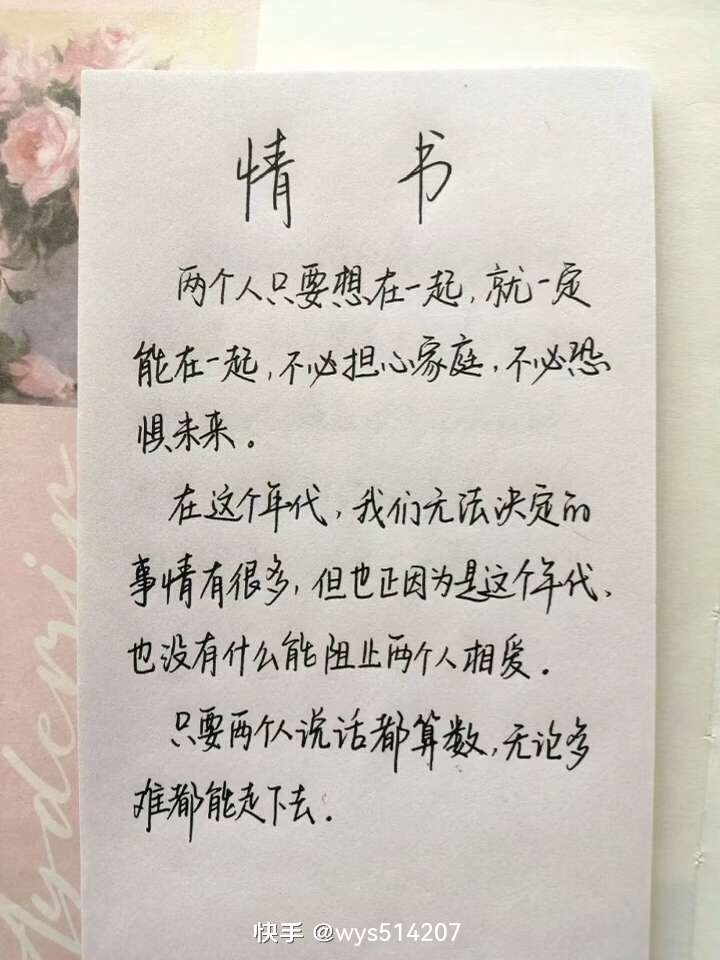 情 书
两个人只要想在一起,就一定
能在一起,不必担心家庭,不必恐
惧未来。
在这个年代,我们无法决定的
事情有很多,但也正因为是这个年代、
也没有什么能阻止两个人相爱.
只要两个人说话都算数,无论多
难都能走下去.
快手 @wys514207